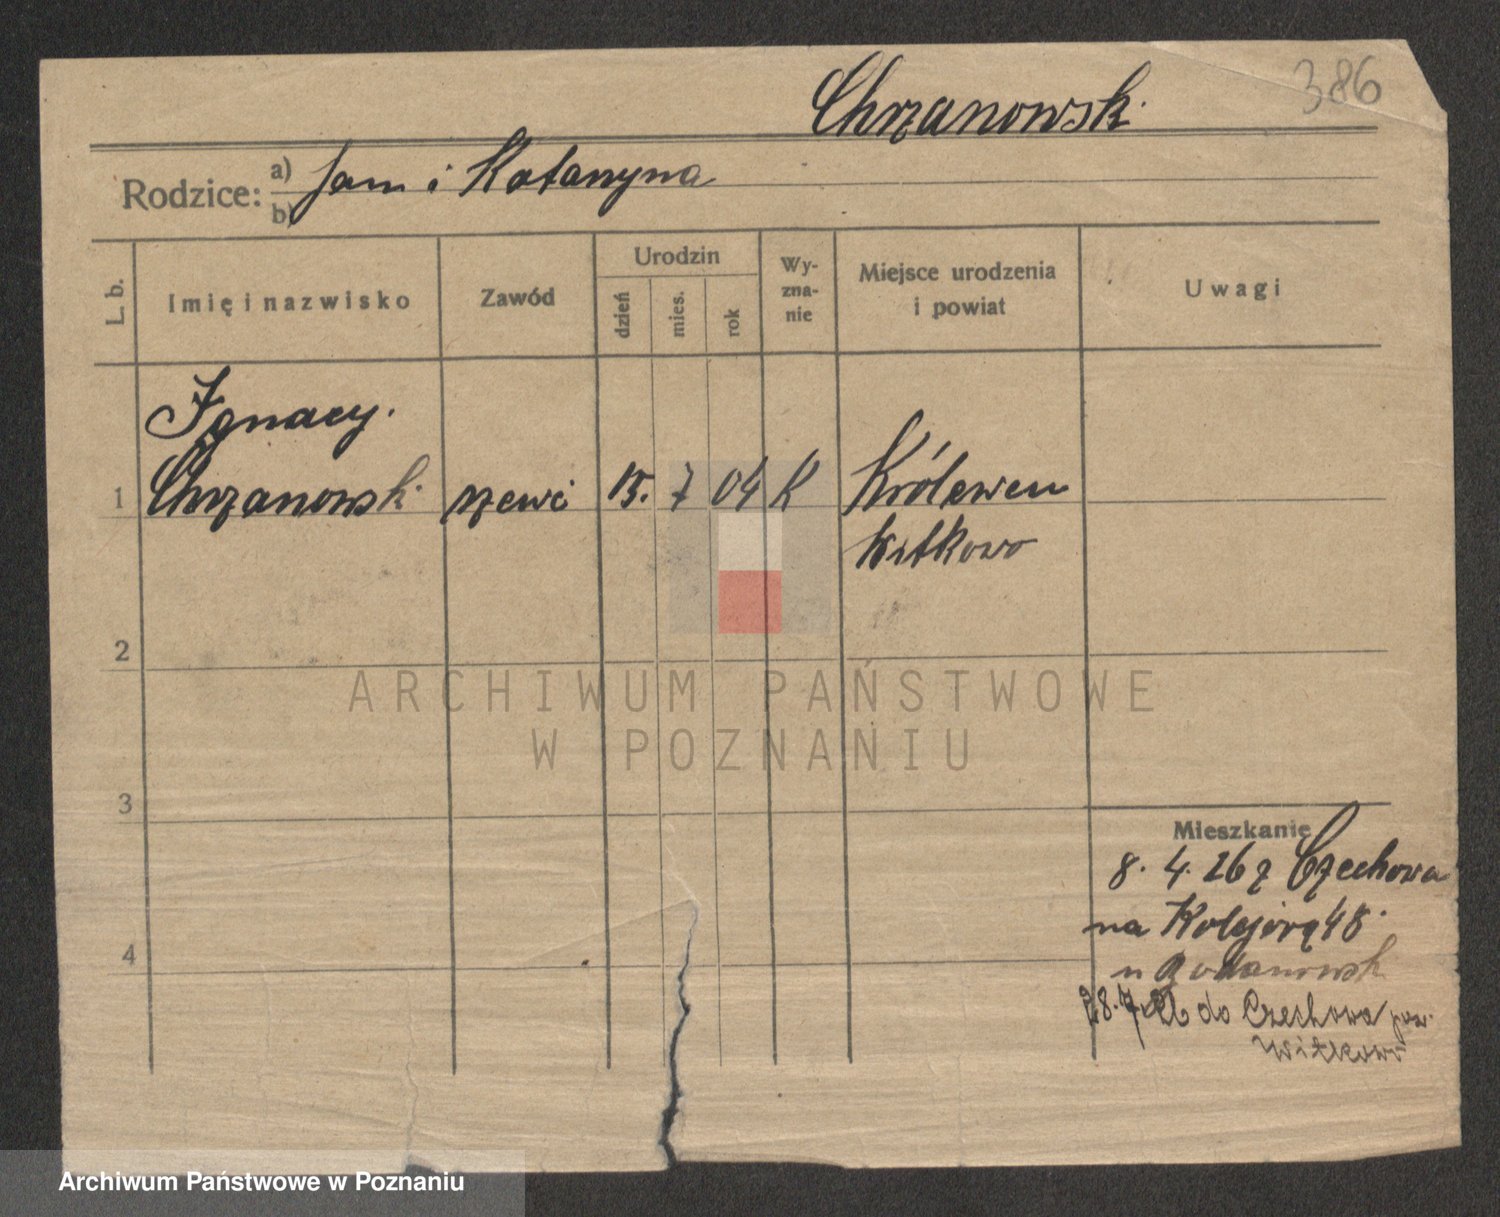 386
Chrzanowski
Rodzice: a) Jan i Katarzyna
b)
L. b.
Imię i nazwisko
Zawód
Urodzin
dzień
mies.
rok
Wy-
zna-
nie
Miejsce urodzenia
i powiat
Uwagi
Ignacy
1 Chrzanowski szewc 15. 7 04 K Królewiec
Witkowo
2
ARCHIWUM PAŃSTWOWE
W POZNANIU
3
Mieszkanie
8. 4. 26 z Czechowa
na Kolejową 48
u
4
28. 7. 26 do Czechowa pow.
Witkowo
Archiwum Państwowe w Poznaniu